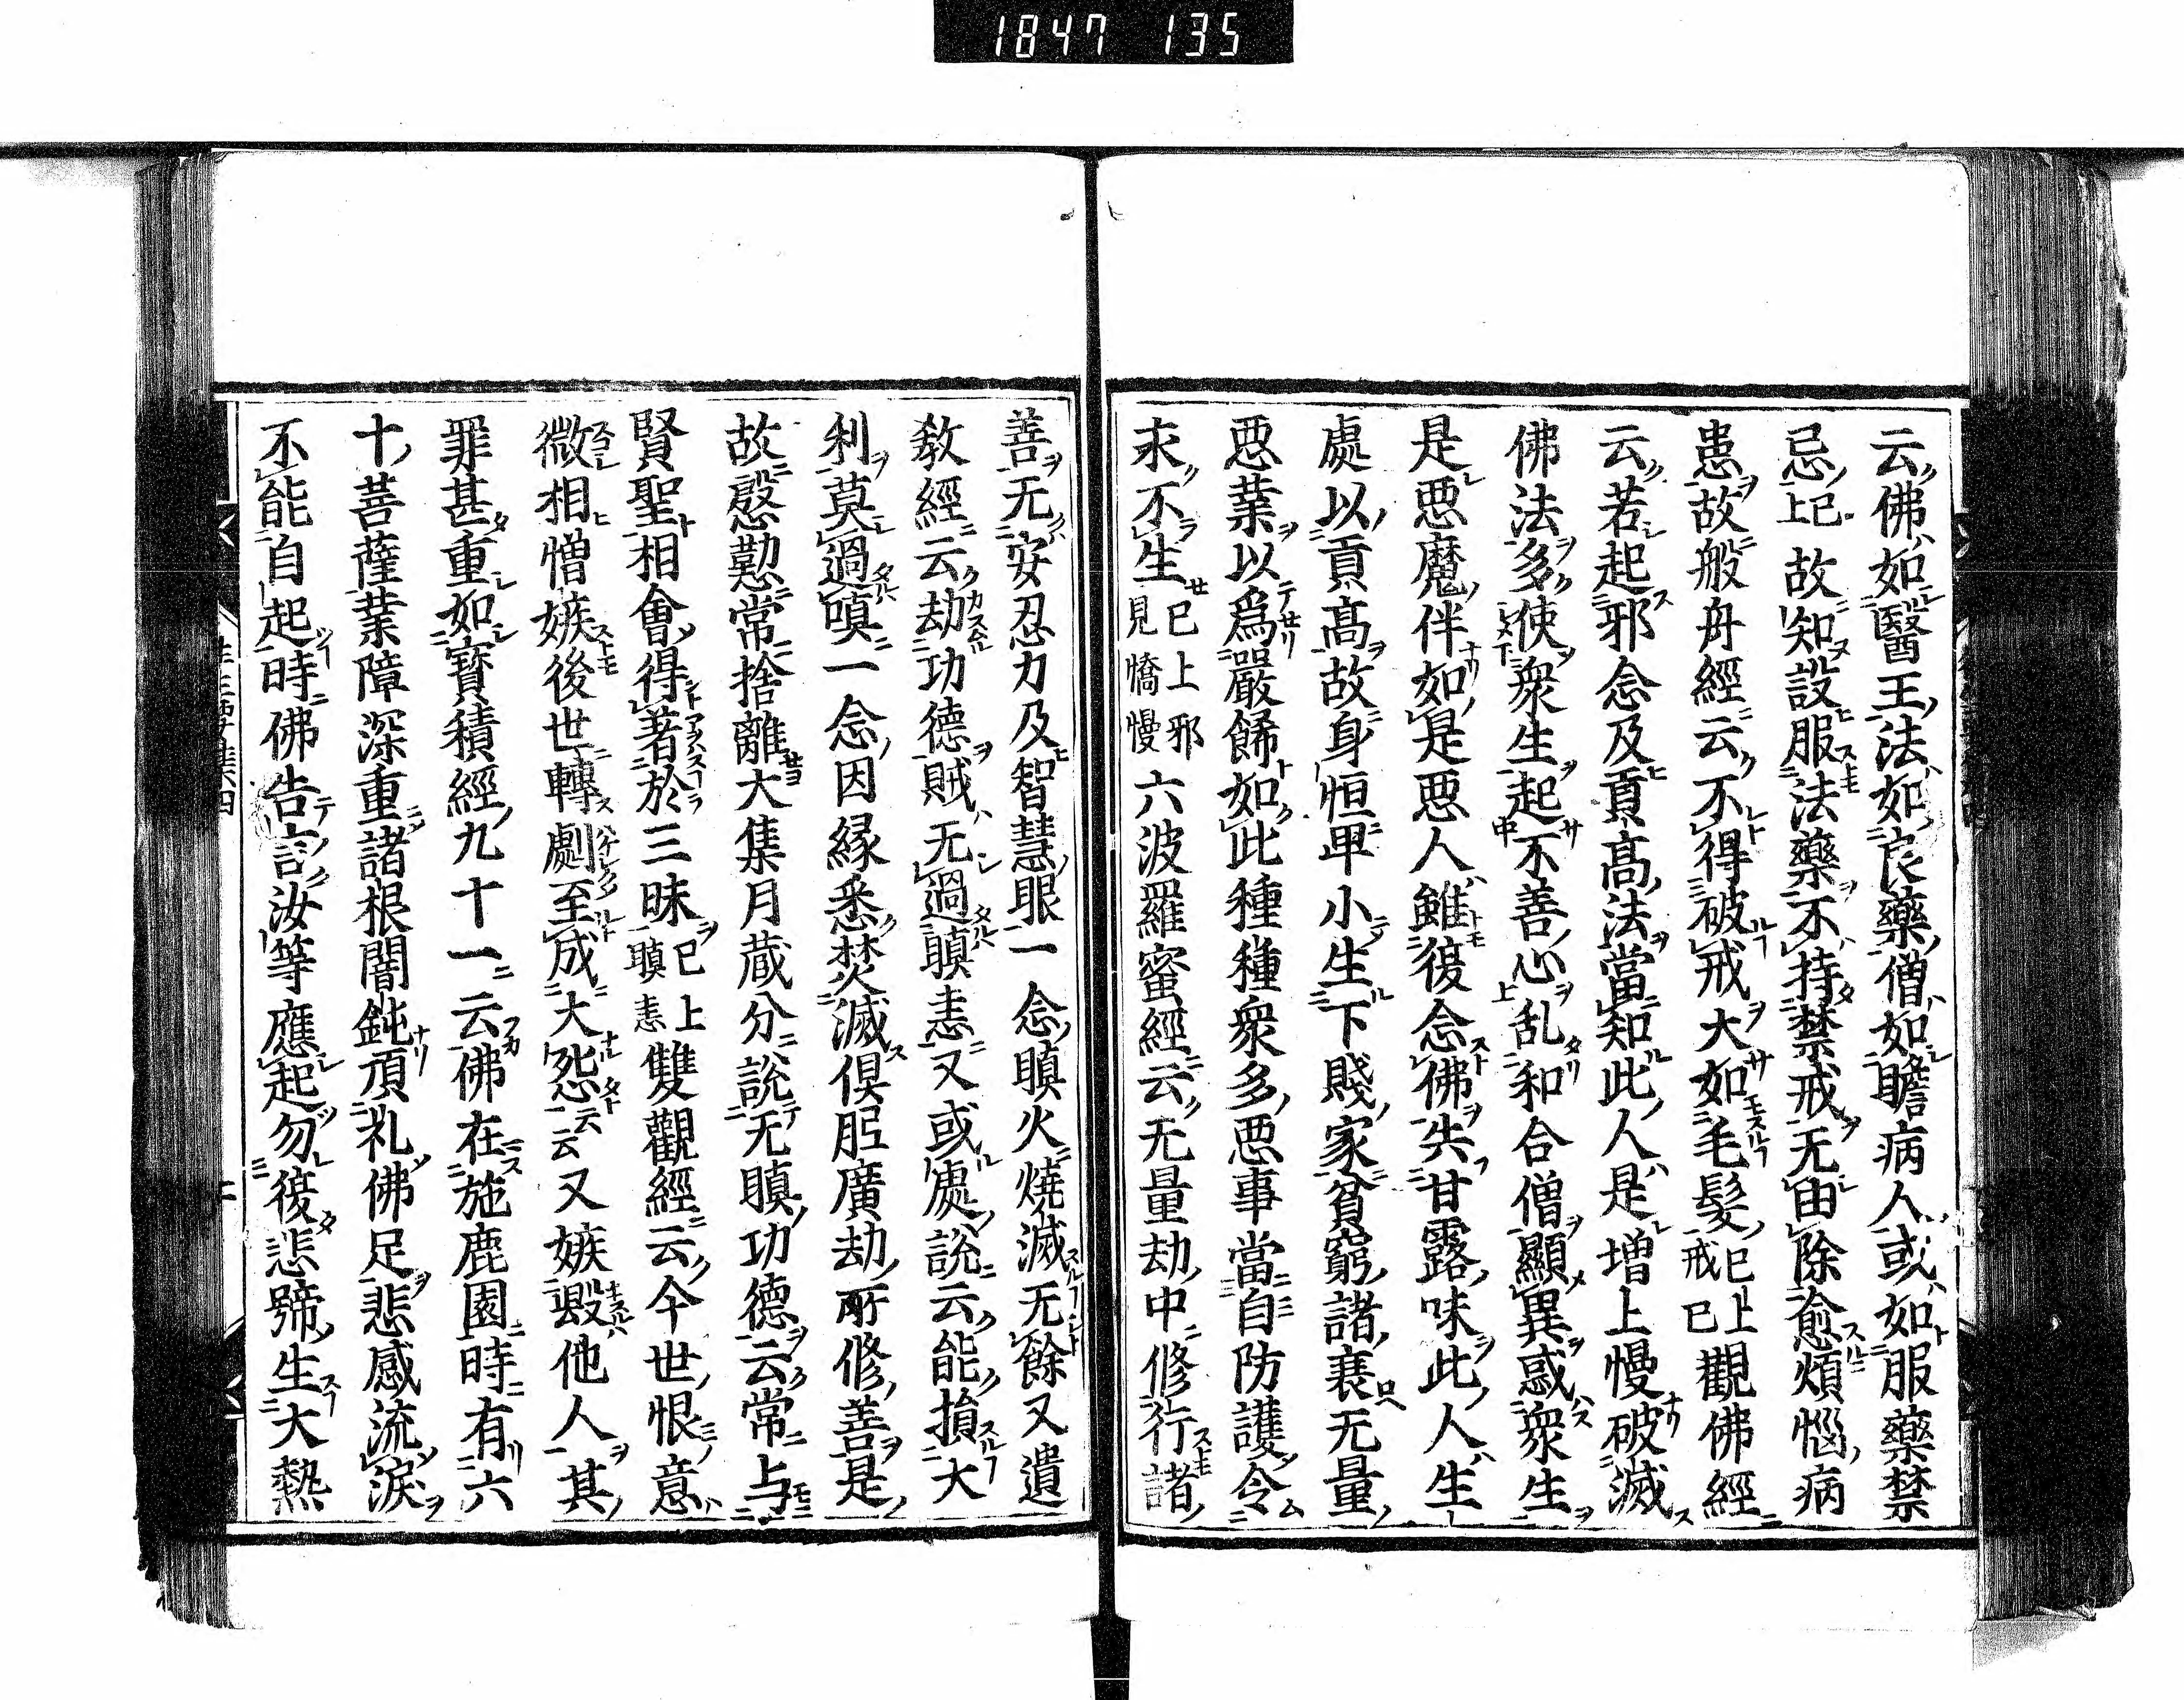 1847 135
云佛如醫王法如良藥僧如瞻病人或如服藥禁
忌已上故知設服法藥不持禁戒无由除愈煩惱病
患故般舟經云不得破戒大如毛髮已上戒已觀佛經
云若起邪念及貢高法當知此人是增上慢破滅
佛法多使衆生起不善心乱和合僧顯異惑衆生
是惡魔伴如是惡人雖復念佛失甘露味此人生
處以貢高故身恒卑小生下賤家貧窮諸衰无量
惡業以爲嚴餝如此種種衆多惡事當自防護令
永不生已上邪見憍慢六波羅蜜經云无量劫中修行諸
善无安忍力及智慧眼一念瞋火燒滅无餘又遺
敎經云劫功德賊无過瞋恚又或處說云能損大
利莫過嗔一念因緣悉焚滅俱胝廣劫所修善是
故慇懃常捨離大集月蔵分說无瞋功德云常与
賢聖相會得著於三昧已上瞋恚雙觀經云今世恨意
微相憎嫉後世轉劇至成大怨云云又嫉毀他人其
罪甚重如寶積經九十一云佛在施鹿園時有六
十菩薩業障深重諸根闇鈍頂礼佛足悲感流淚
不能自起時佛告言汝等應起勿復悲號生大熱